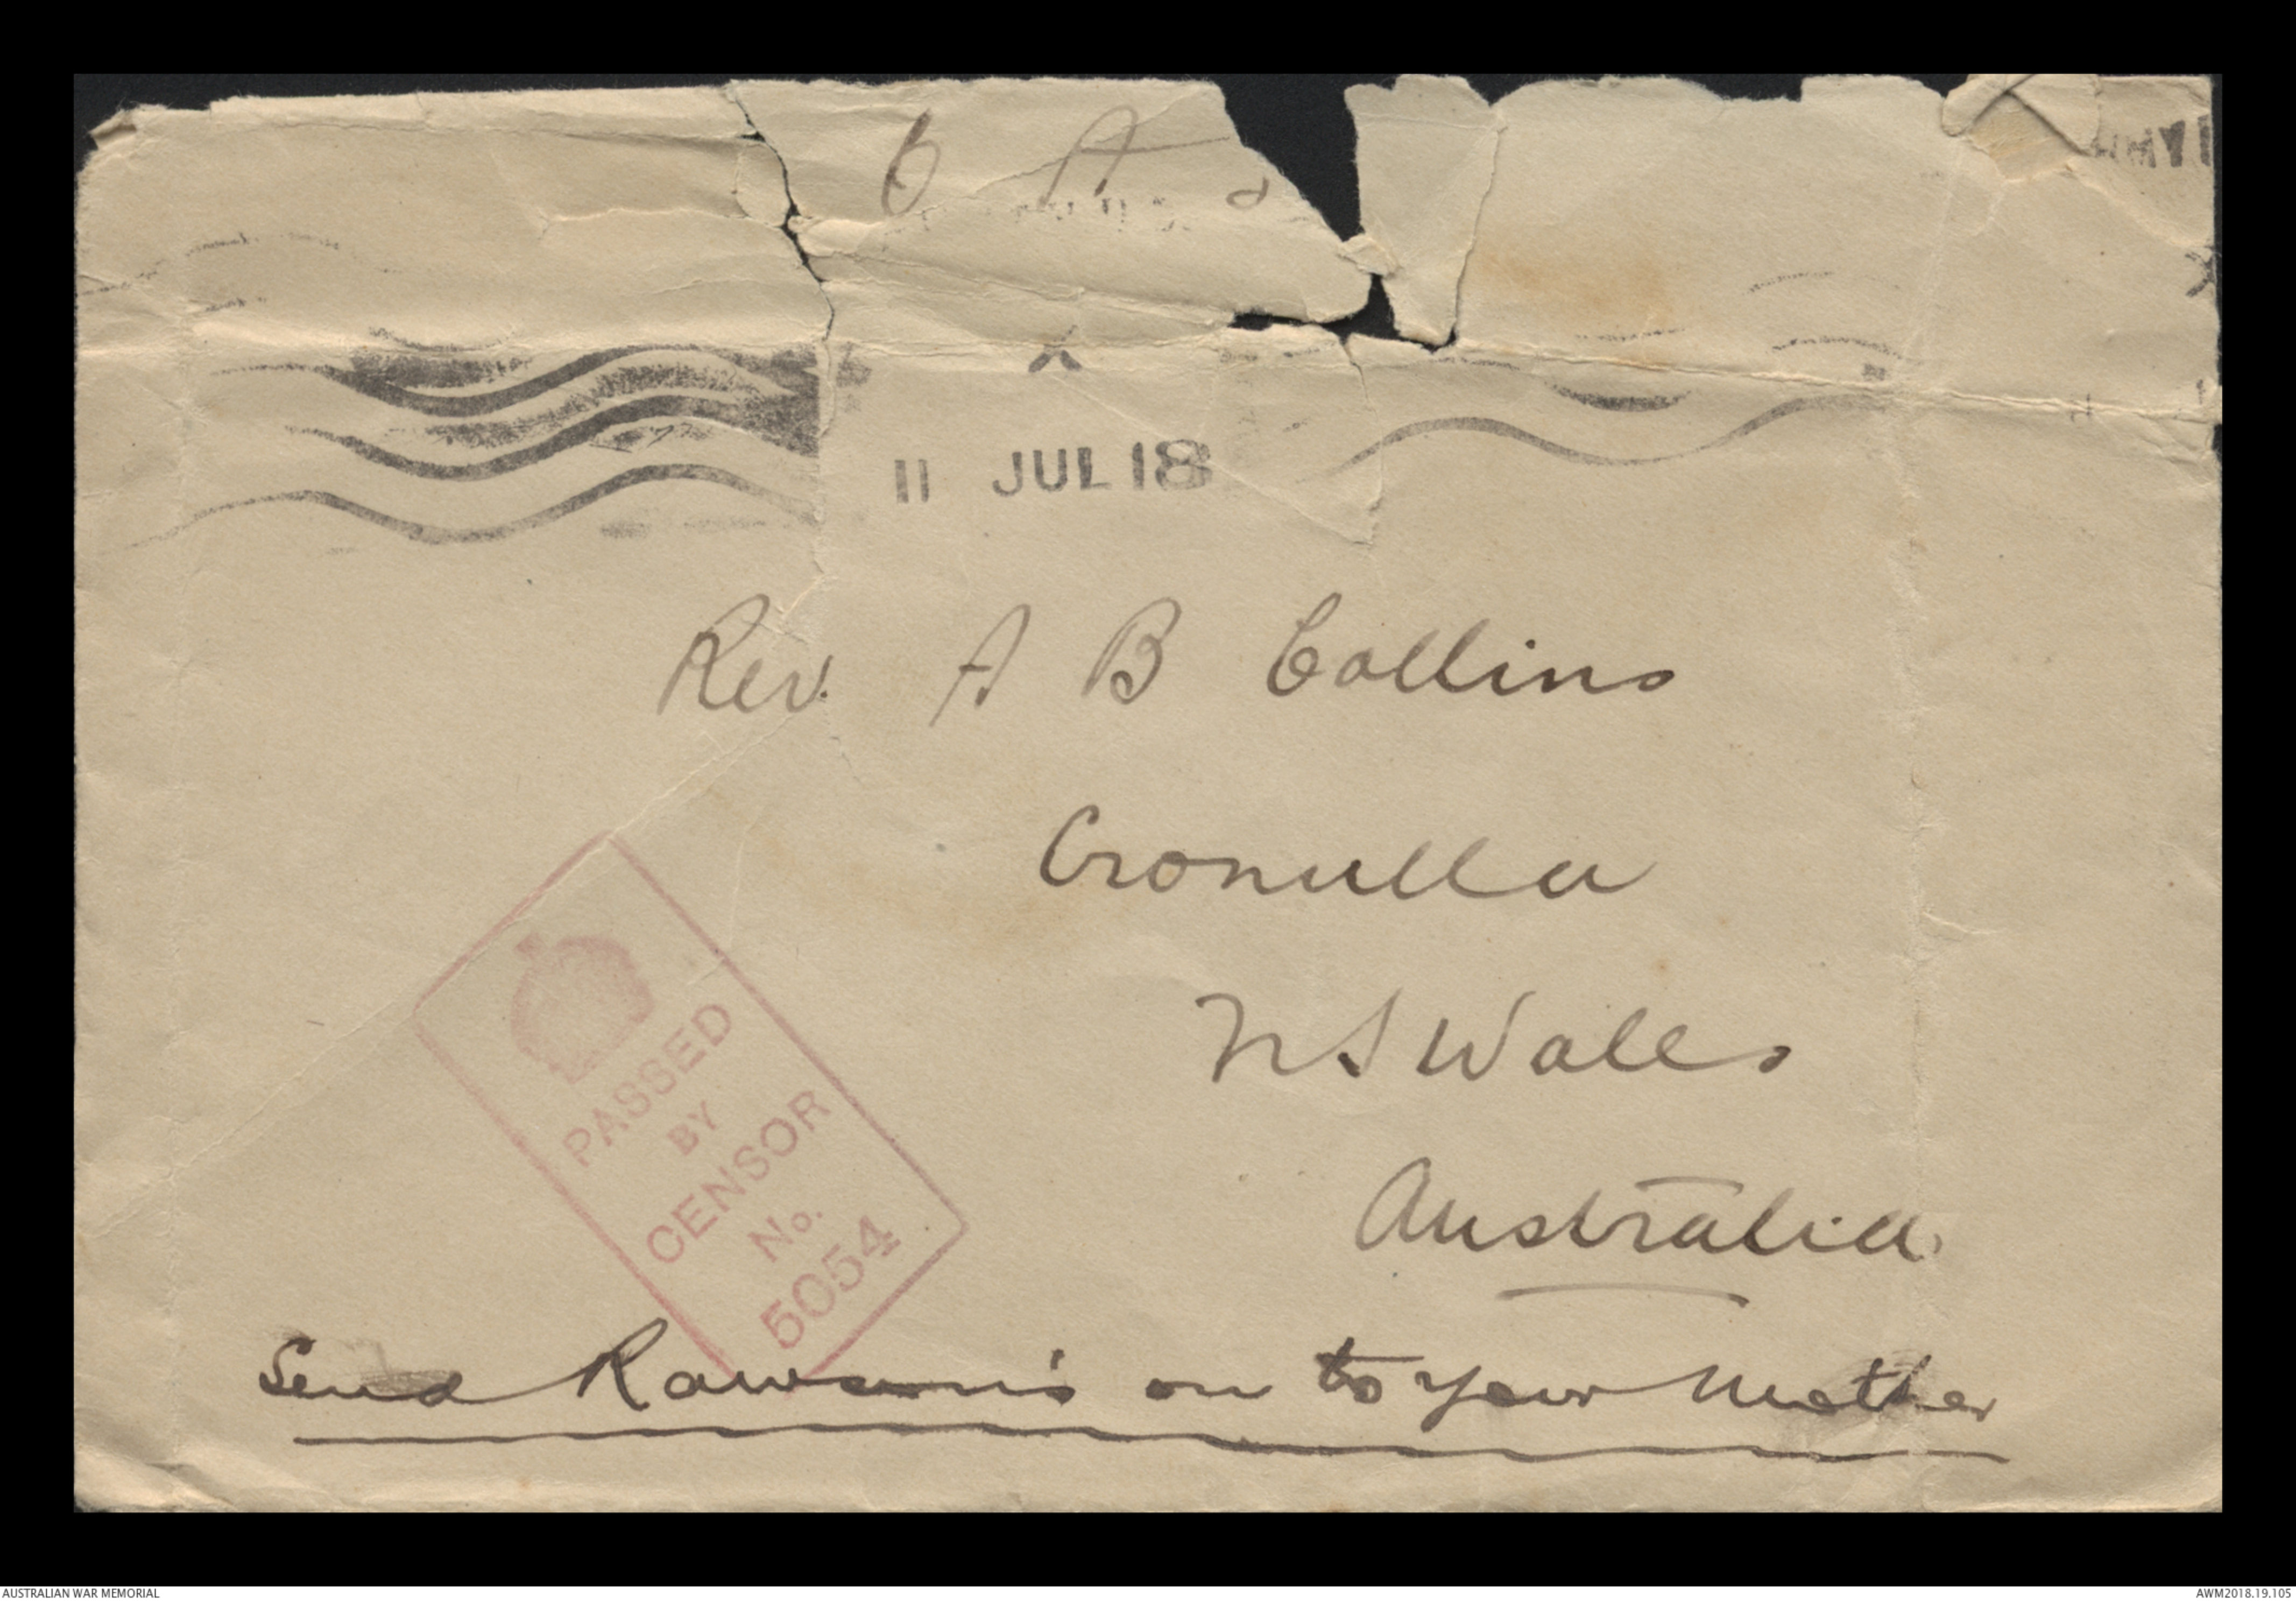 O A
X
11 JUL 18
Rev. A B Collins
Cronulla
N S Wales
Australia.
PASSED
BY
CENSOR
No.
5054
Send Rawson's on to your Mother
AUSTRALIAN WAR MEMORIAL
AWM2018.19.105